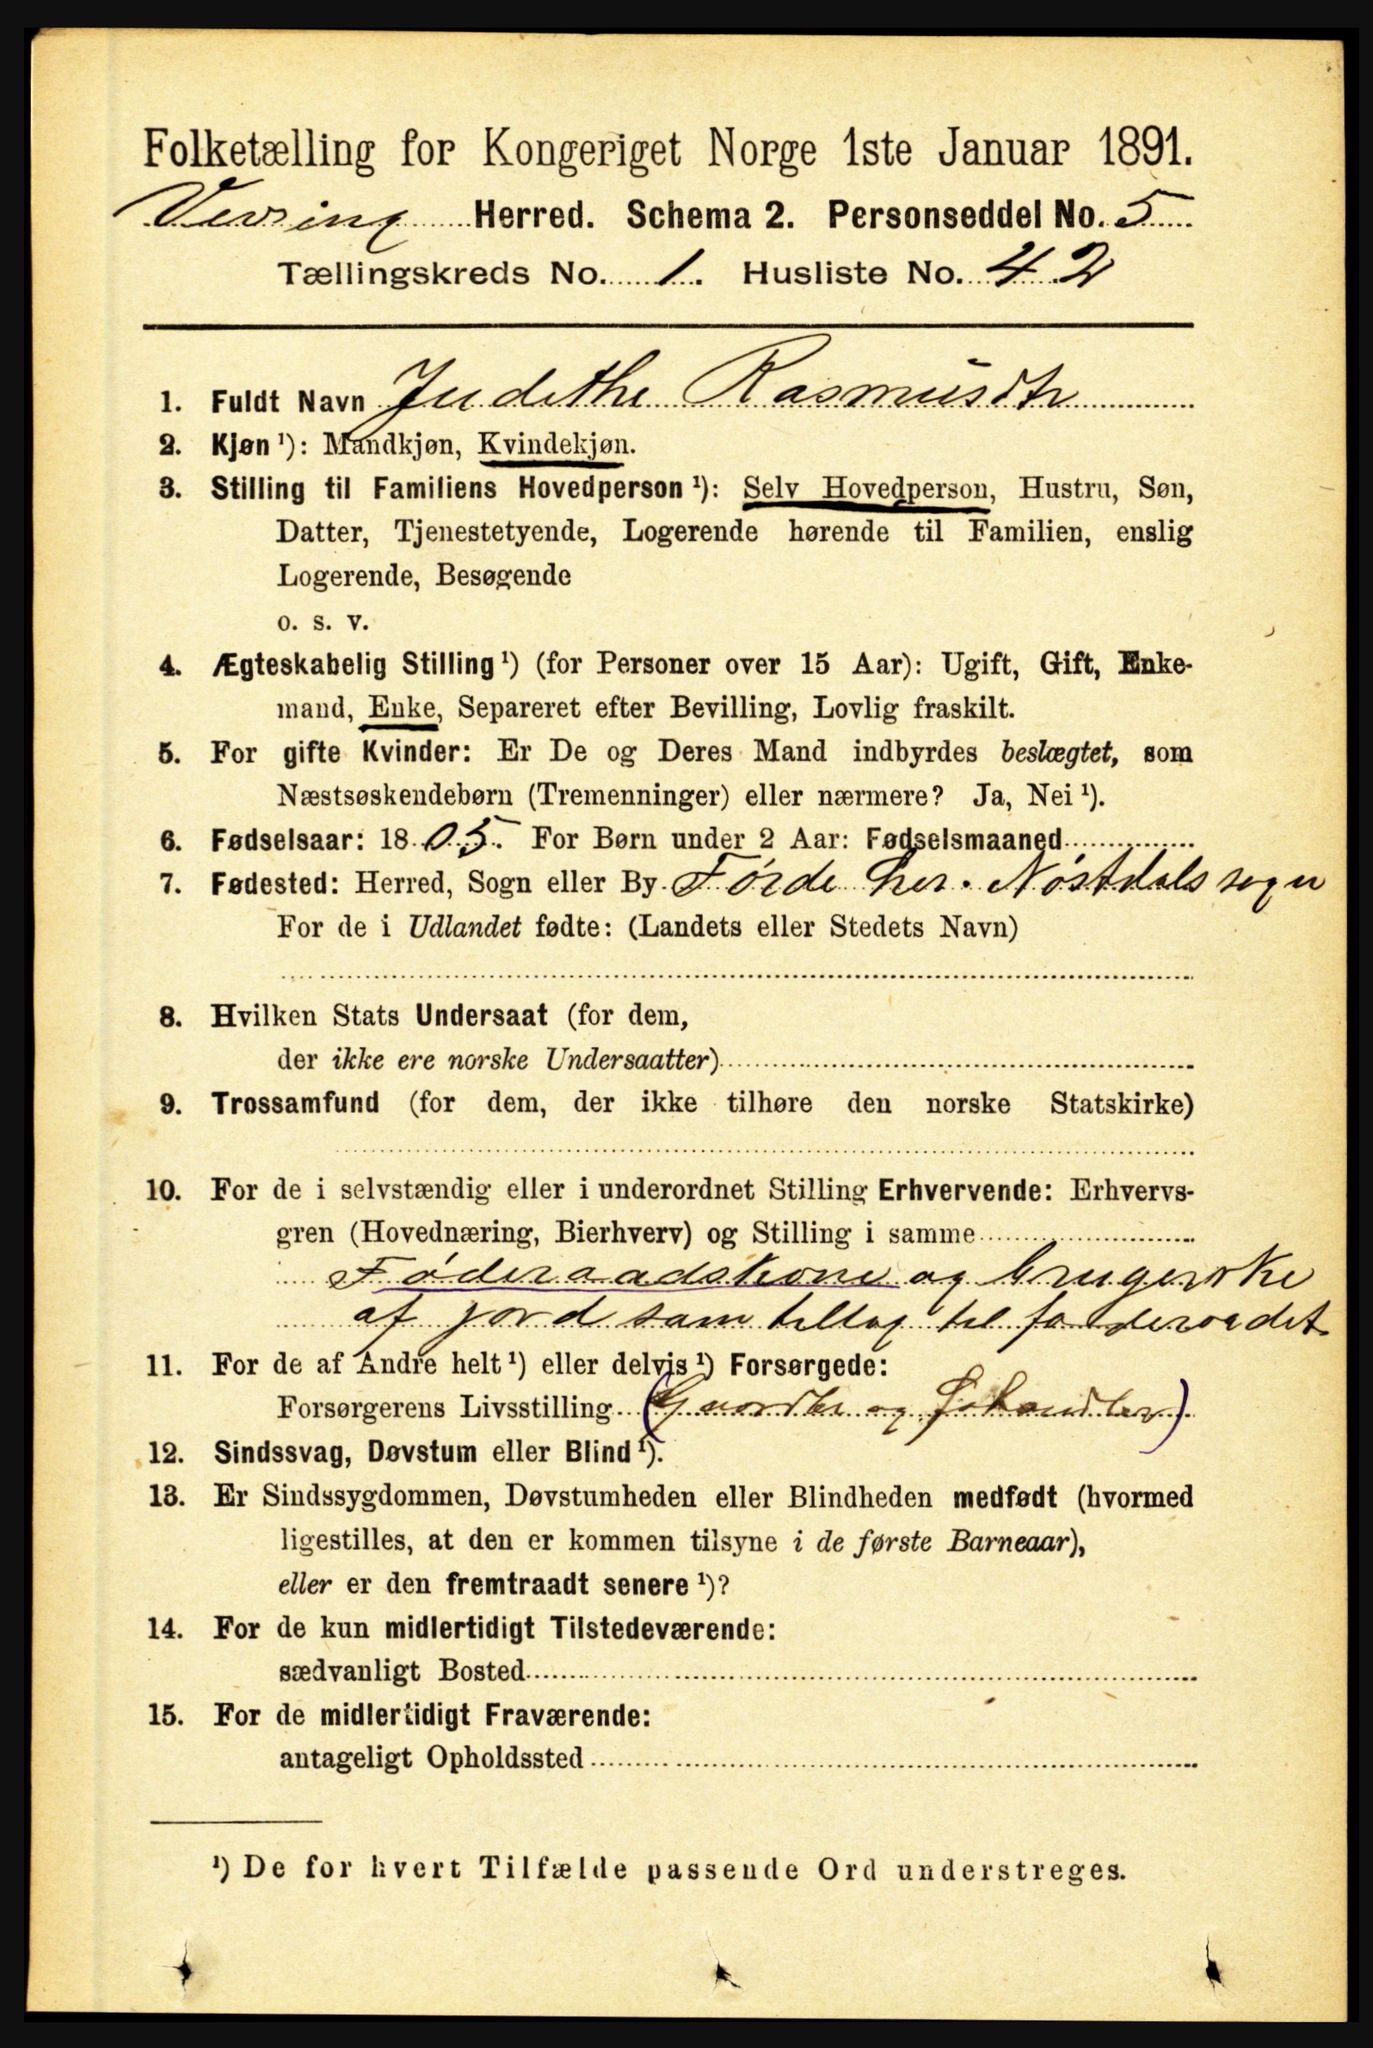 Folketælling for Kongeriget Norge 1ste Januar 1891.
Vevring Herred. Schema 2. Personseddel No. 5
Tællingskreds No. 1. Husliste No. 42
1. Fuldt Navn Judithe Rasmusdtr
2. Kjøn ¹): Mandkjøn, Kvindekjøn.
3. Stilling til Familiens Hovedperson ¹): Selv Hovedperson, Hustru, Søn,
Datter, Tjenestetyende, Logerende hørende til Familien, enslig
Logerende, Besøgende
o. s. v.
4. Ægteskabelig Stilling ¹) (for Personer over 15 Aar): Ugift, Gift, Enke-
mand, Enke, Separeret efter Bevilling, Lovlig fraskilt.
5. For gifte Kvinder: Er De og Deres Mand indbyrdes beslægtet, som
Næstsøskendebørn (Tremenninger) eller nærmere? Ja, Nei ¹).
6. Fødselsaar: 1805. For Børn under 2 Aar: Fødselsmaaned
7. Fødested: Herred, Sogn eller By Førde her. Nøstdals sogn
For de i Udlandet fødte: (Landets eller Stedets Navn)
8. Hvilken Stats Undersaat (for dem,
der ikke ere norske Undersaatter)
9. Trossamfund (for dem, der ikke tilhøre den norske Statskirke)
10. For de i selvstændig eller i underordnet Stilling Erhvervende: Erhvervs-
gren (Hovednæring, Bierhverv) og Stilling i samme
Føderaadskone og brugerske
af jord som tillæg til foderaadet
11. For de af Andre helt ¹) eller delvis ¹) Forsørgede:
Forsørgerens Livsstilling (Gaardbr og )
12. Sindssvag, Døvstum eller Blind ¹).
13. Er Sindssygdommen, Døvstumheden eller Blindheden medfødt (hvormed
ligestilles, at den er kommen tilsyne i de første Barneaar),
eller er den fremtraadt senere ¹)?
14. For de kun midlertidigt Tilstedeværende:
sædvanligt Bosted
15. For de midlertidigt Fraværende:
antageligt Opholdssted
¹) De for hvert Tilfælde passende Ord understreges.